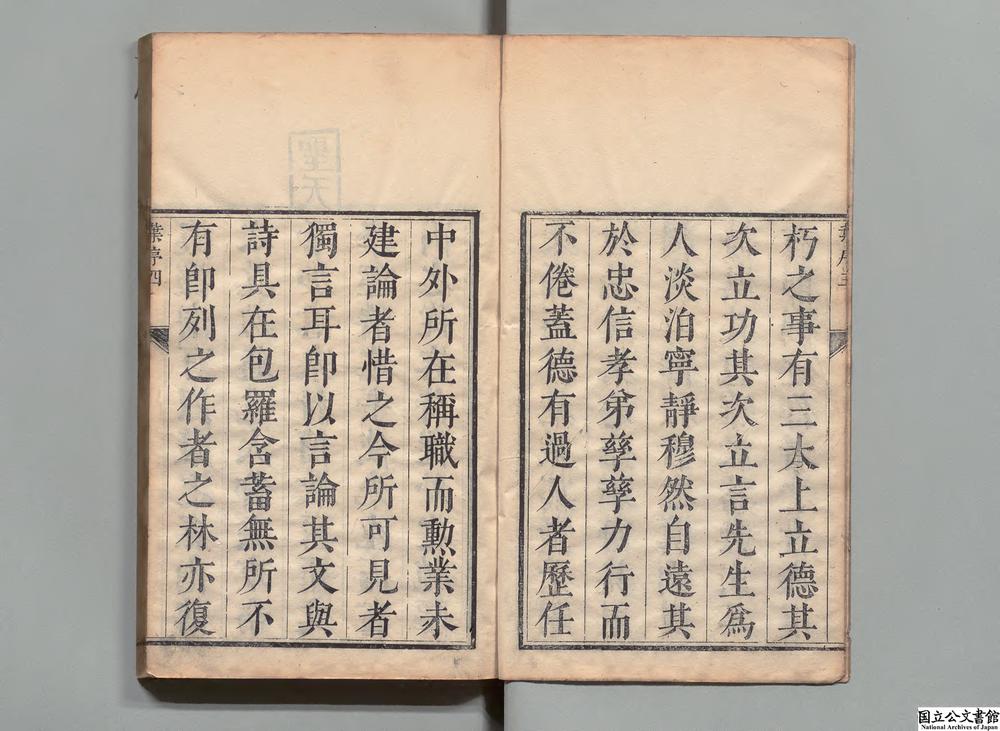 朽之事有三太上立德其
次立功其次立言先生爲
人淡泊寧靜穆然自遠其
於忠信孝弟孳孳力行而
不倦蓋德有過人者歷任
中外所在稱職而勲業未
建論者惜之今所可見者
獨言耳卽以言論其文與
詩具在包羅含蓄無所不
有卽列之作者之林亦復
葉序四
国立公文書館
National Archives of Japan